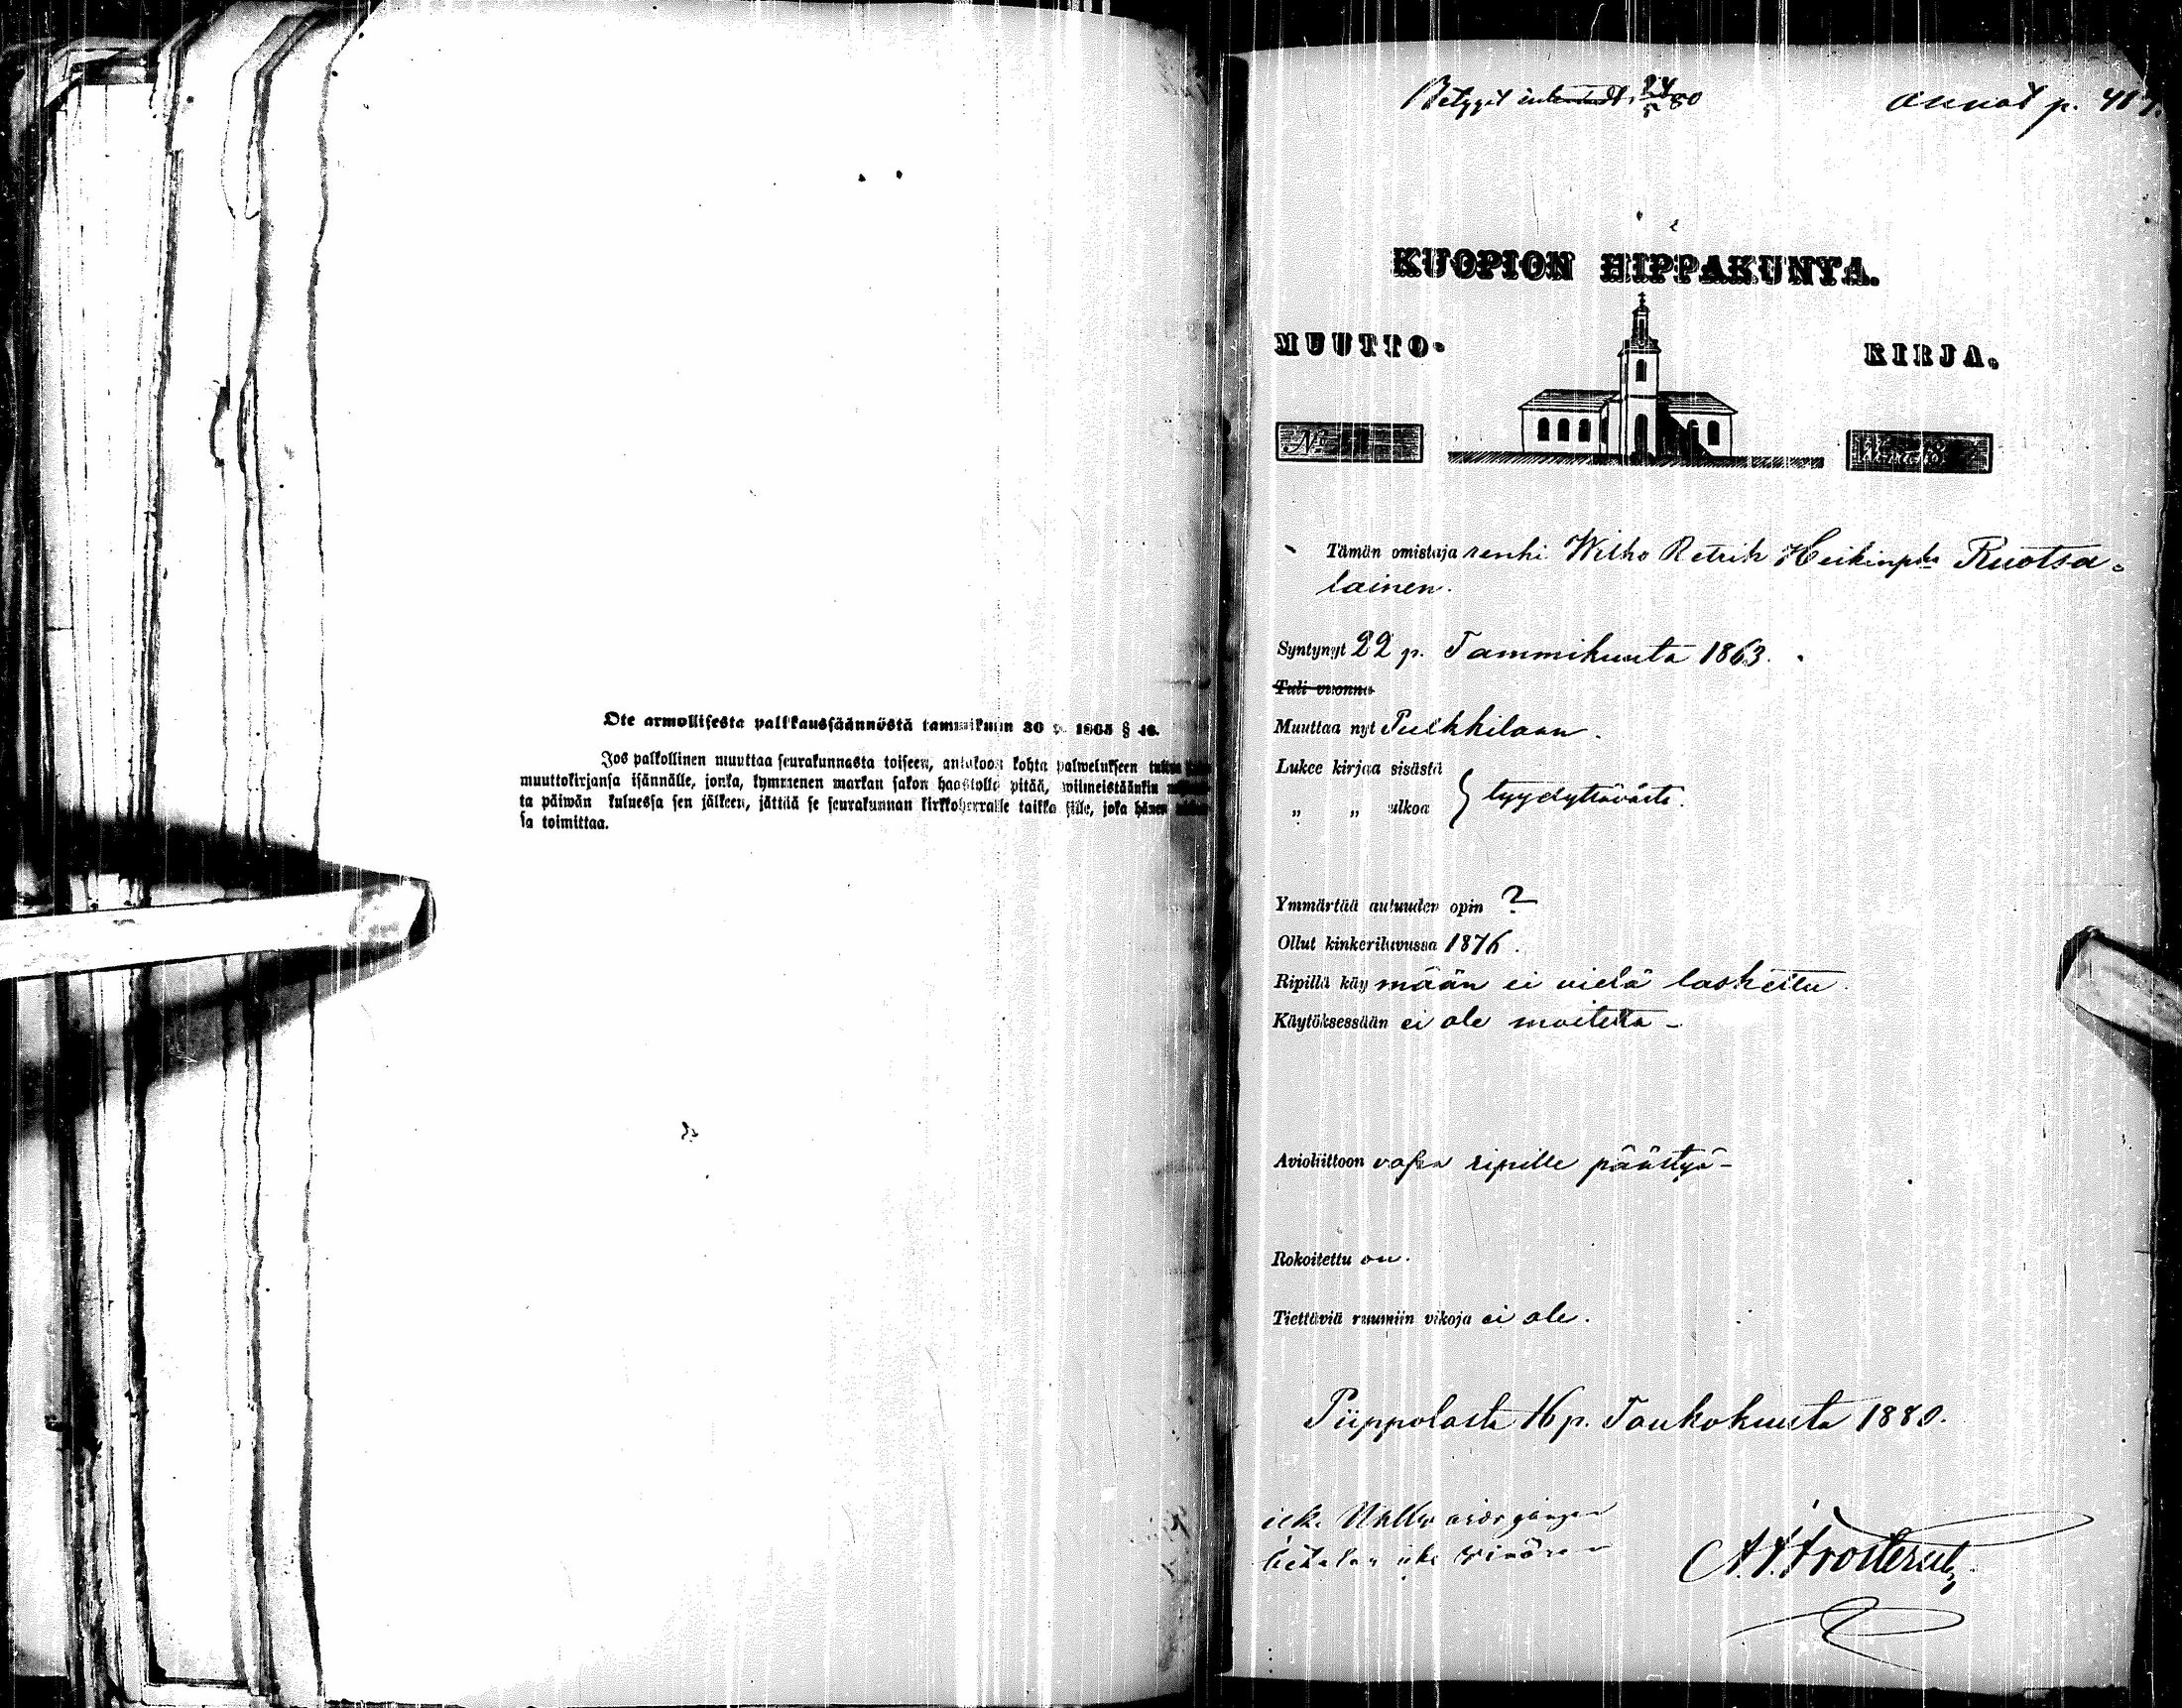 Ote armollisesta palkkaussäännöstä tammikuun 30 p. 1865 §
Jos palkollinen muuttaa seurakunnasta toiseen, antakoon kohta palwelukseen
muuttokirjansa isännälle, jonka, kymmenen markan sakon haastolla pitää, wiimeistäänkin
ta päiwän kuluessa sen jälkeen, jättää se seurakunnan kirkkoherralle taikka sille, joka hänen
sa toimittaa.
Betyget 24/5 80
annot p. 417.
KUOPION HIPPAKUNTA.
MUUTTO-
KIRJA.
No
Tämän omistaja renki Wilho Petrik Heikinpka Ruotsa-
lainen.
Syntynyt 22 p. Tammikuuta 1863.
Tuli vuonna
Muuttaa nyt Pulkkilaan.
Lukee kirjaa sisästä
„ „ ulkoa } tyydyttävästi.
Ymmärtää autuuden opin ?
Ollut kinkeriluvussa 1876.
Ripillä käymään ei vielä laskettu.
Käytöksessään ei ole moitetta -
Avioliittoon vapaa ripille päästyä -
Rokoitettu on.
Tiettäviä ruumiin vikoja ei ole.
Piippolasta 16 p. Toukokuuta 1880.
A. Frosterus